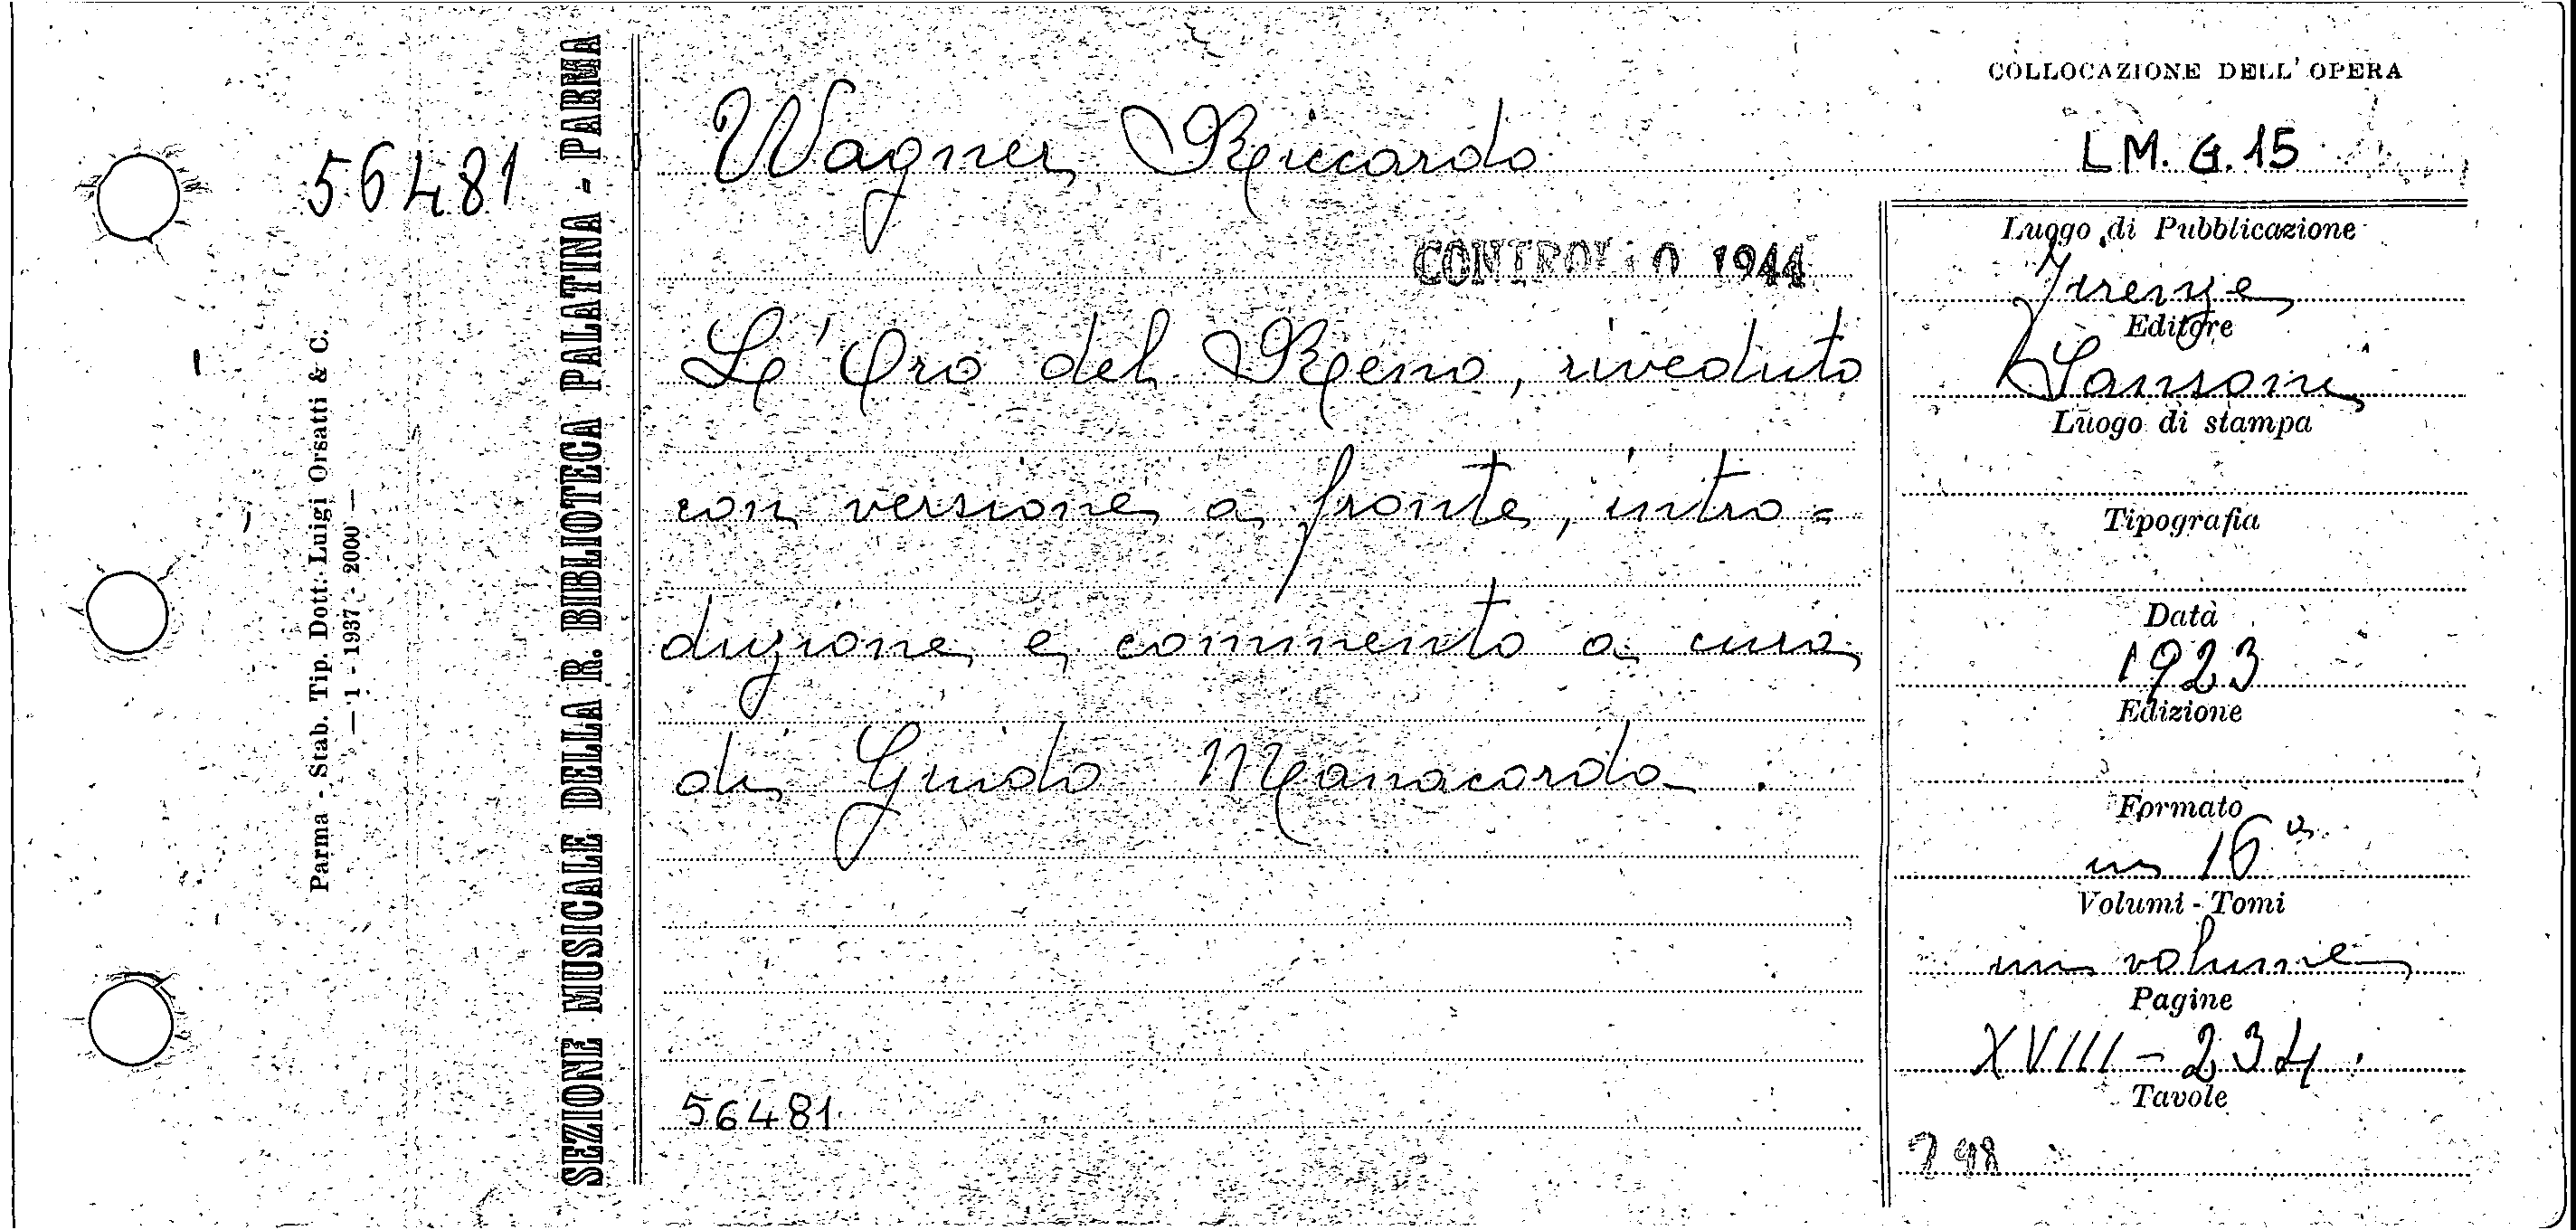 56481
Parma - Stab. Tip. Dott. Luigi Orsatti & C.
— 1 - 1937 - 2000 —
SEZIONE MUSICALE DELLA R. BIBLIOTECA PALATINA - PARMA
Wagner Riccardo
CONTROLLO 1944
L'Oro del Reno, riveduto
con versione a fronte, intro=
duzione e commento a cura
di Guido Manacorda.
56481
COLLOCAZIONE DELL'OPERA
LM. G. 15
Luogo di Pubblicazione
Firenze
Editore
Sansoni
Luogo di stampa
Tipografia
Data
1923
Edizione
Formato
in 16°
Volumi - Tomi
un volume
Pagine
XVIII - 234.
Tavole